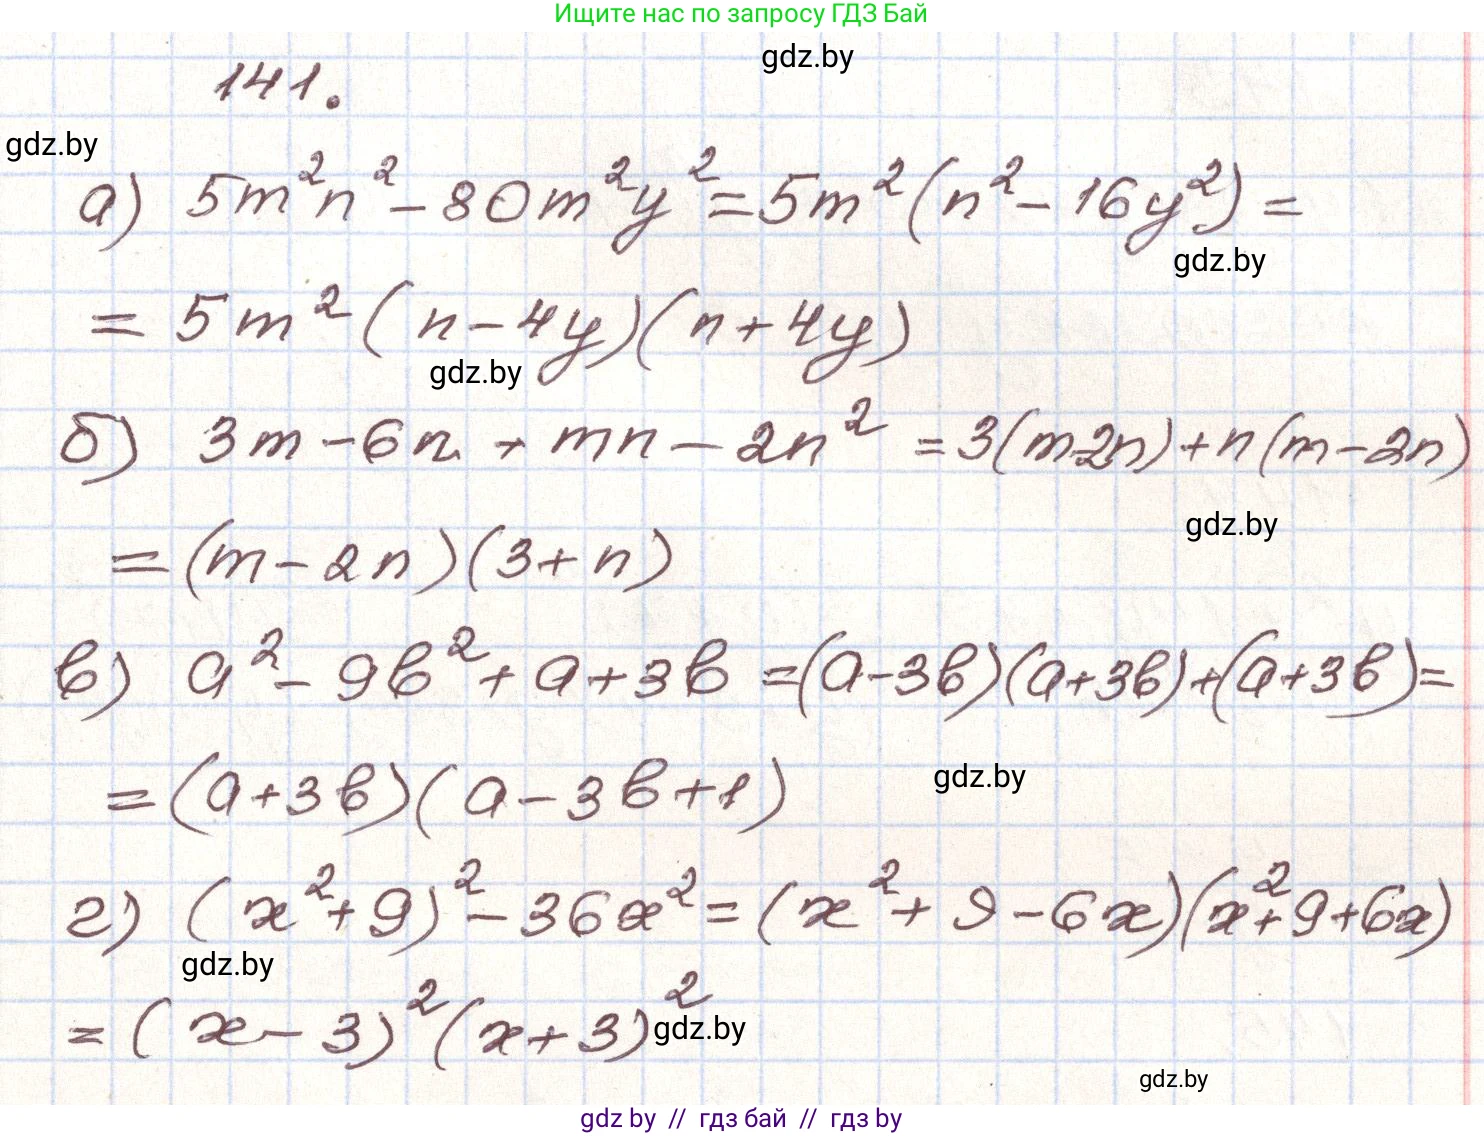 Ищите нас по запросу ГДЗ Бай
gdz.by
141.
gdz.by
а) 5m²n² - 80m²y² = 5m²(n² - 16y²) =
gdz.by
= 5m²(n - 4y)(n + 4y)
gdz.by
б) 3m - 6n + mn - 2n² = 3(m-2n) + n(m - 2n)
gdz.by
= (m - 2n)(3 + n)
в) a² - 9b² + a + 3b = (a - 3b)(a + 3b) + (a + 3b) =
gdz.by
= (a + 3b)(a - 3b + 1)
г) (x² + 9)² - 36x² = (x² + 9 - 6x)(x² + 9 + 6x)
gdz.by
= (x - 3)²(x + 3)²
gdz.by
gdz.by
gdz by // гдз бай // гдз by